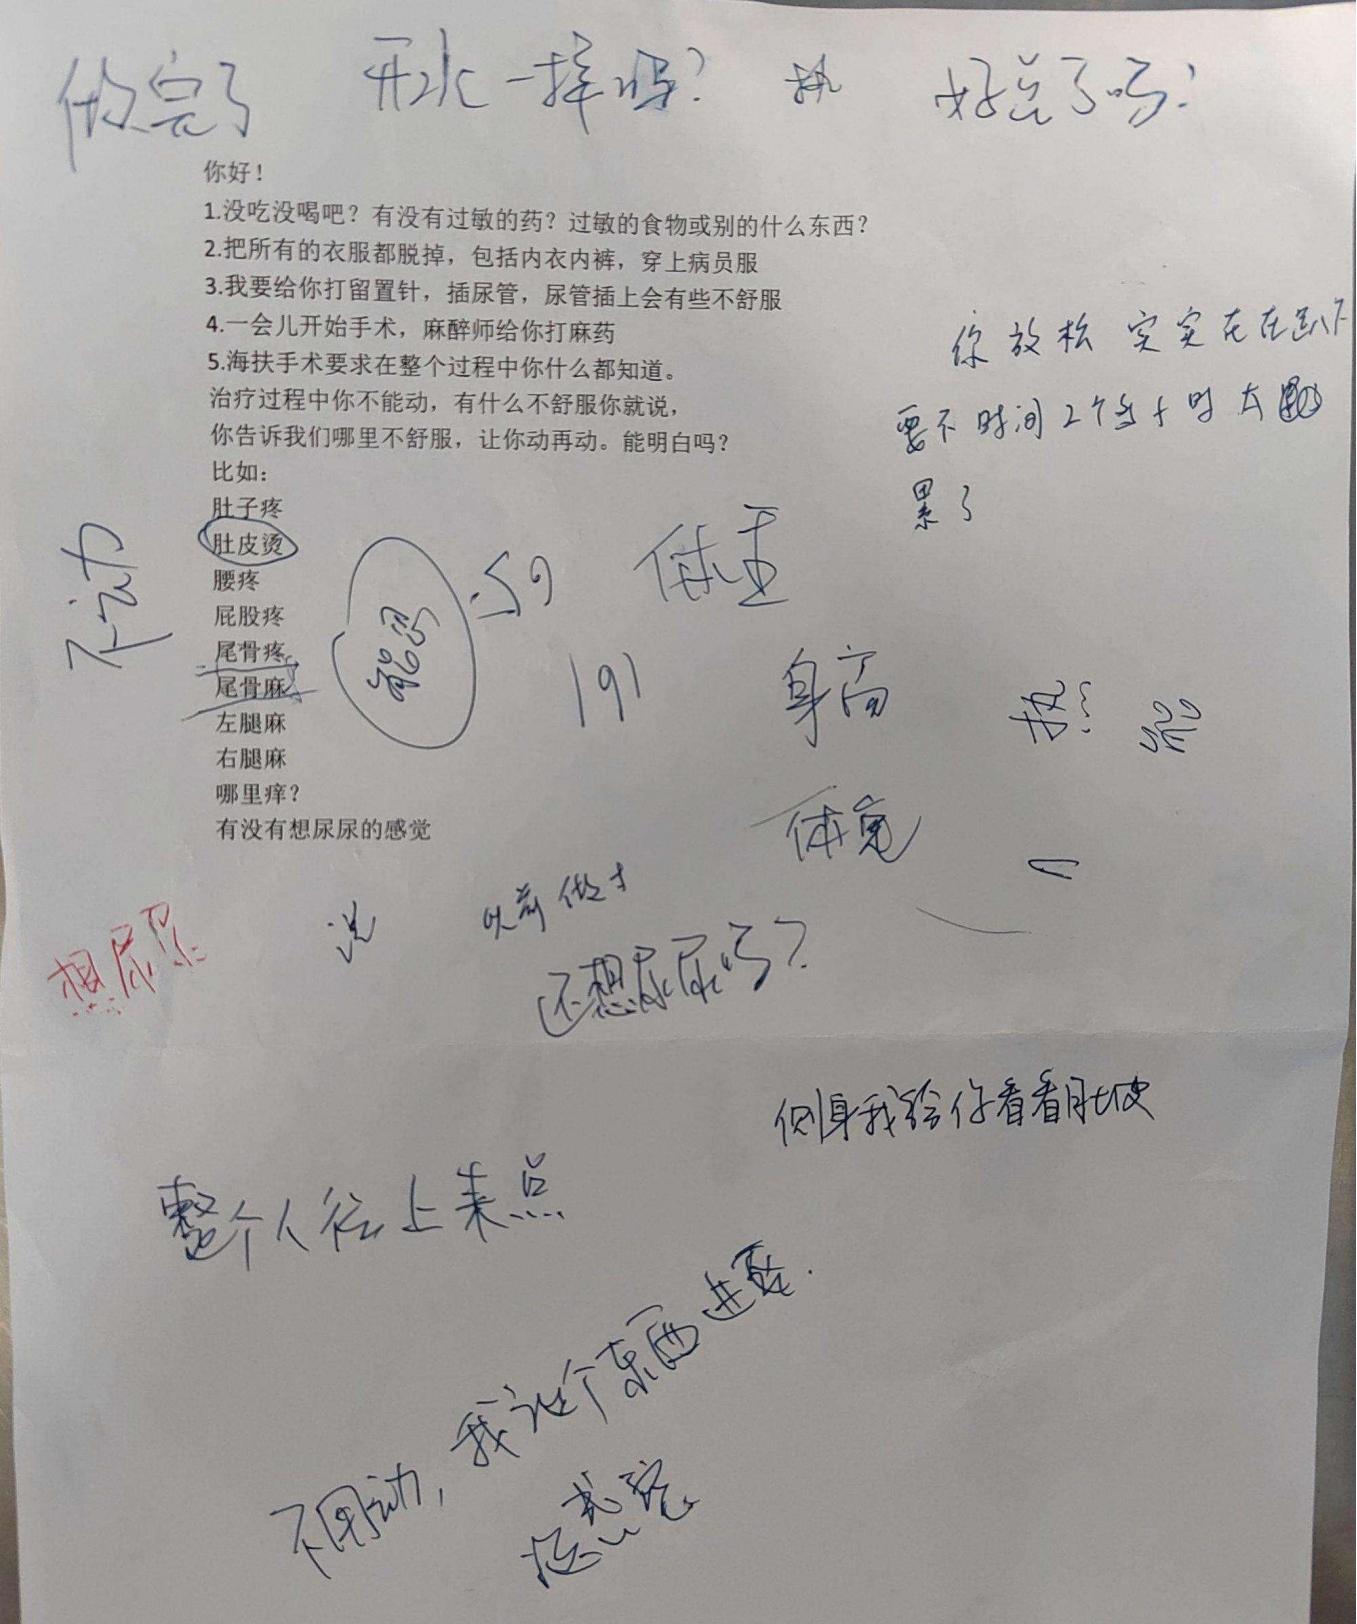 做完了 开水一样吗? 热 好点了吗?
你好！
1.没吃没喝吧？有没有过敏的药？过敏的食物或别的什么东西？
2.把所有的衣服都脱掉，包括内衣内裤，穿上病员服
3.我要给你打留置针，插尿管，尿管插上会有些不舒服
4.一会儿开始手术，麻醉师给你打麻药
5.海扶手术要求在整个过程中你什么都知道。
治疗过程中你不能动，有什么不舒服你就说，
你告诉我们哪里不舒服，让你动再动。能明白吗？
比如：
肚子疼
肚皮烫
腰疼
屁股疼
尾骨疼
尾骨麻
左腿麻
右腿麻
哪里痒？
有没有想尿尿的感觉
你放松 实实在在趴下
要不时间2个多小时太
累了
不动
59 体重
191 身高
热
体宽
想尿尿
说
以前做
还想尿尿吗?
侧身我给你看看肚皮
整个人往上来点
不用动,我这个东西进